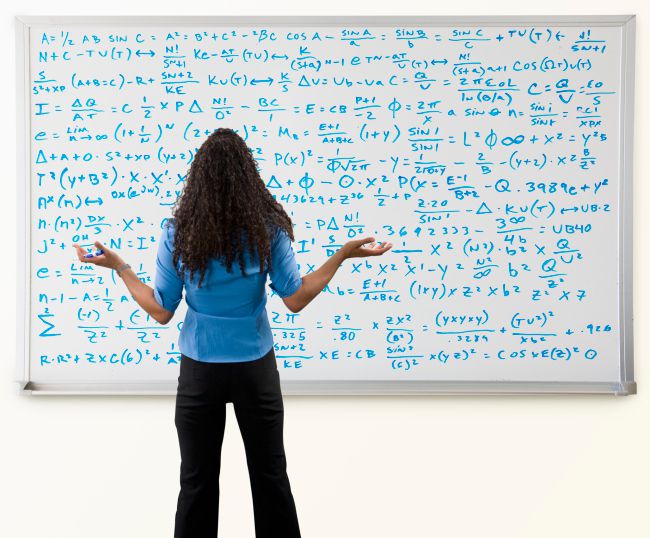 A = 1/2 AB SIN C = A² = B² + C² - 2BC COS A - SIN A/a = SIN B/b = SIN C/c + TU(T)
N + C - TU(T) ↔ N!/S^N+1 Ke - aT/U (TU) ↔ K/(S+a) N-1 e TN - aT/U (T) ↔ N!/(S+a)^n+1 COS(ΩT)U(T)
S/S²+XP (A+B=C) - R + SN+2/KE KU(T) ↔ K/S ΔV = Vb - Va C = Q/V = 2πE₀L/ln(b/a) C = Q/V = E0/S
I = ΔQ/ΔT = C 1/2 X P Δ N!/O² - BC/1 = E = CB P+1/-2 Φ = 2π/X a SIN θ n = SIN i/SIN r = nc1/XPX
e = LIM n→∞ (1 + 1/N)^N (2 = M₂ = E+1/A+B+C (1+y) SIN 1/SIN 1 = L² Φ ∞ + X² = Y²5
Δ + A + O · S² + XP (Y+2) P(X)² = 1/Φ√2π - Y = 1/210+Y - 2/B - (Y+2) · X² B/Z²
(Y+B²) · X · X' · X Δ + Φ - O · X² P(X = E-1/B+2 - Q . 3989e + Y²
N^X (N) ↔ 43629 + Z³⁶ 1/2 + P 2·20/SIN 1 - Δ · KU(T) ↔ UB·2
n · (N²) DX/3 · X² = PΔ N!/O² . 3692333 - 3∞/4b = UB40
J² + N = I² I' S 1/2 X² (N²) · b² X Q/V²
e = LIM n→2 1 X^b X² X¹ - Y² N²/∞ b² Q/Z²
n - 1 - A = 1/2 A b = E+1/A+B+C (1XY) X Z² X b² Z² X 7
Σ² (-1)/Z² + (-1)/Z² 2π/.325 = Z²/.80 X ZX²/(B²) = (YXYXY)/.3289 + (TU²)²/Xb² + .926
R · R² + Z X C(6)² + 1 SN+2/KE X E = CB SIN²/(C)² X (YZ)² = COS X E(Z)² O